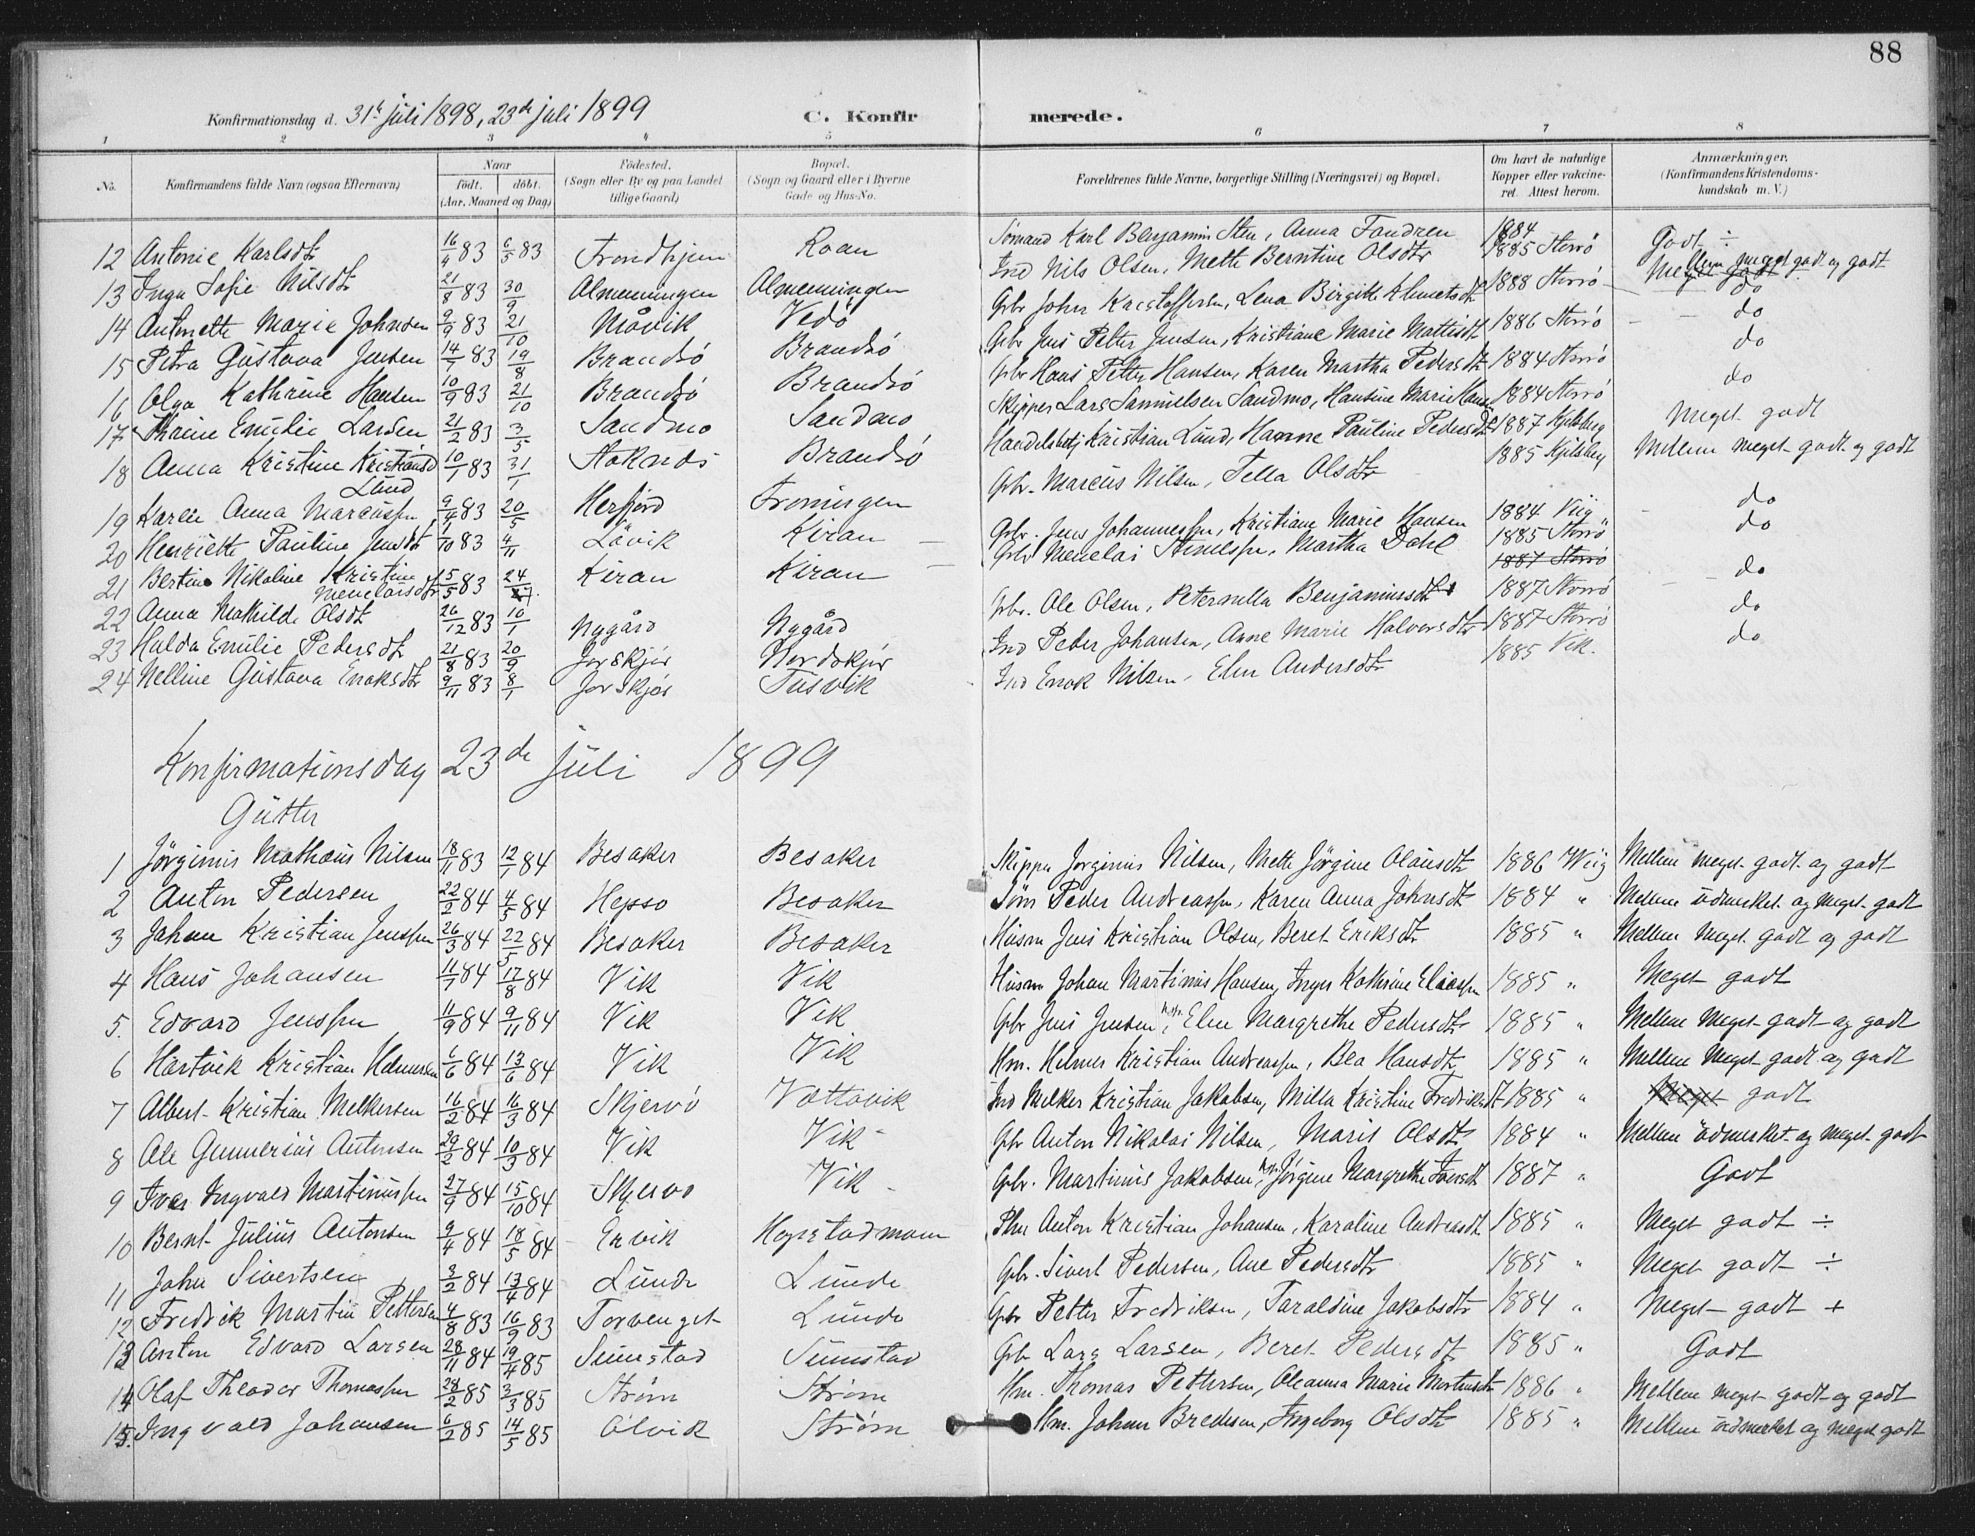 88
Konfirmationsdag d. 31te juli 1898, 23de juli 1899 C. Konfir merede.
1 2 3 4 5 6 7 8
No. Konfirmandens fulde Navn (ogsaa Efternavn) Naar født. døbt. (Aar, Maaned og Dag) Fødested. (Sogn eller By og paa Landet tillige Gaard) Bopæl. (Sogn og Gaard eller i Byerne Gade og Hus-No. Forældrenes fulde Navne, borgerlige Stilling (Næringsvei) og Bopæl. Om havt de naturlige Kopper eller vakcineret. Attest herom. Anmærkninger. (Konfirmandens Kristendomskundskab m. V.)
12 Antonie Karlsdtr 16/4 83 6/5 83 Trondhjem Roan Sømand Karl Benjamin Sten, Anna Fandrem 1884 Godt ÷
13 Inga Sofie Nilsdtr 21/8 83 30/9 Almenningen Almenningen Ind Nils Olsen, Mette Berntine Olsdtr 1885 Storrø Mellem meget godt og godt
14 Antonette Marie Johnsen 9/9 83 21/10 Måvik Vedø Gbr John Kristoffersen, Lena Birgitte Klemetsdtr 1888 Storrø do
15 Petra Gustava Jensen 14/7 83 19/8 Brandsø Brandsø Gbr Jens Petter Jensen, Kristiane Marie Mattisdtr 1886 Storrø do
16 Olga Kathrine Hansen 10/9 83 21/10 Brandsø Brandsø Gbr Hans Petter Hansen, Karen Martha Pedersdtr 1884 Storrø do
17 Thrine Emilie Larsen 21/2 83 3/5 Sandmo Sandmo Skipper Lars Samuelsen Sandmo, Hansine Marie Hansd 1884 Storrø do
18 Anna Kristine Kristiansd Lund 10/1 83 31/1 Stoknes Brandsø Handelsbetj Kristian Lund, Hanne Pauline Pedersdtr 1887 Kjelsberg Meget godt
19 Karen Anna Marcussen 9/4 83 20/5 Herfjord Froningen Gbr. Marcus Nilsen, Tella Olsdtr 1885 Kjelsberg Mellem meget godt og godt
20 Henriette Pauline Jensdtr 1/10 83 4/11 Løvik Kiran Gbr. Jens Johannessen, Kristiane Marie Hansen 1884 Viig do
21 Bertine Nikoline Kristine Menelaisdtr 15/5 83 24/ Kiran Kiran Gbr Menelai Martha Dahl 1885 Storrø do
1887 Storrø
22 Anna Mathilde Olsdt 26/12 83 10/1 Nygård Nygård Gbr. Ole Olsen, Peternella Benjaminsdtr 1887 Storrø do
23 Hulda Emilie Pedersdtr 21/8 83 20/9 Jorskjør Hordskjør Ind Peder Johansen, Anne Marie Halvorsdtr 1887 Storrø do
24 Nelline Gustava Enoksdtr 9/11 83 8/1 Jorskjør Tusvik Ind Enok Nilsen, Elen Andersdtr 1885 Vik. do
Konfirmationsdag 23de juli 1899
Gutter
1 Jørginus Mathæus Nilsen 18/11 83 12/1 84 Besaker Besaker Skipper Jørginus Nilsen, Mette Jørgine Olausdtr 1886 Wiig Mellem meget godt og godt
2 Anton Pedersen 22/2 84 4/5 84 Hepsø Besaker Søm Peder Andreassen, Karen Anna Johnsdtr 1884 " Mellem udmerket og meget godt
3 Johan Kristian Jenssen 26/3 84 22/5 84 Besaker Besaker Husm Jens Kristian Olsen, Beret Eriksdtr 1885 " Mellem meget godt og godt
4 Hans Johansen 11/7 84 17/8 84 Vik Vik Husm Johan Martinus Hansen, Inger Kathrine Eliassen 1885 " Meget godt
5. Edvard Jenssen 11/9 84 9/11 84 Vik Vik Gbr Jens Jensen, Elen Margrethe Pedersdtr 1885 " Mellem meget godt og godt
6 Hartvik Kristian Helmersen 6/6 84 13/6 84 Vik Vik Hm. Helmer Kristian Andreassen, Bea Hansdtr 1885 " Mellem meget godt og godt
7 Albert Kristian Melkersen 16/2 84 16/3 84 Skjervø Vattavik Ind Melker Kristian Jakobsen, Milla Kristine Fredriksdt 1885 " Meget godt
8 Ole Gunnerius Antonsen 29/2 84 10/3 84 Vik Vik Gbr Anton Nikolai Nilsen, Marit Olsdtr 1884 " Mellem udmerket og meget godt
9 Iver Ingvald Martinussen 27/9 84 15/10 84 Skjervø Vik Gbr. Martinus Jakobsen, Jørgine Margrethe Iversdt 1887 " Godt
10 Bernt Julius Antonsen 9/4 84 18/5 84 Ervik Hopstadmoen Phm Anton Kristian Johansen, Karoline Andreasdt 1885 " Meget godt ÷
11 John Sivertsen 3/2 84 13/4 84 Lunde Lunde Gbr. Sivert Pedersen, Ane Pedersdtr 1885 " Meget godt ÷
12 Fredrik Martin Pettersen 4/8 83 16/9 83 Torvenget Lunde Gbr Petter Fredriksen, Taraldine Jakobsdtr 1884 " Meget godt +
13 Anton Edvard Larsen 28/11 84 19/4 85 Sumstad Sumstad Gbr Lars Larsen, Beret Pedersdt 1885 " Godt
14 Olaf Theodor Thomassen 28/2 85 3/3 85 Strøm Strøm Hm. Thomas Pettersen, Oleanna Marie Mortensdtr 1886 " Mellem meget godt og godt
15. Ingvald Johansen 6/2 85 14/5 85 Olvik Strøm Hm. Johan Bredesen, Ingeborg Olsdtr 1885 " Mellem udmerket og meget godt